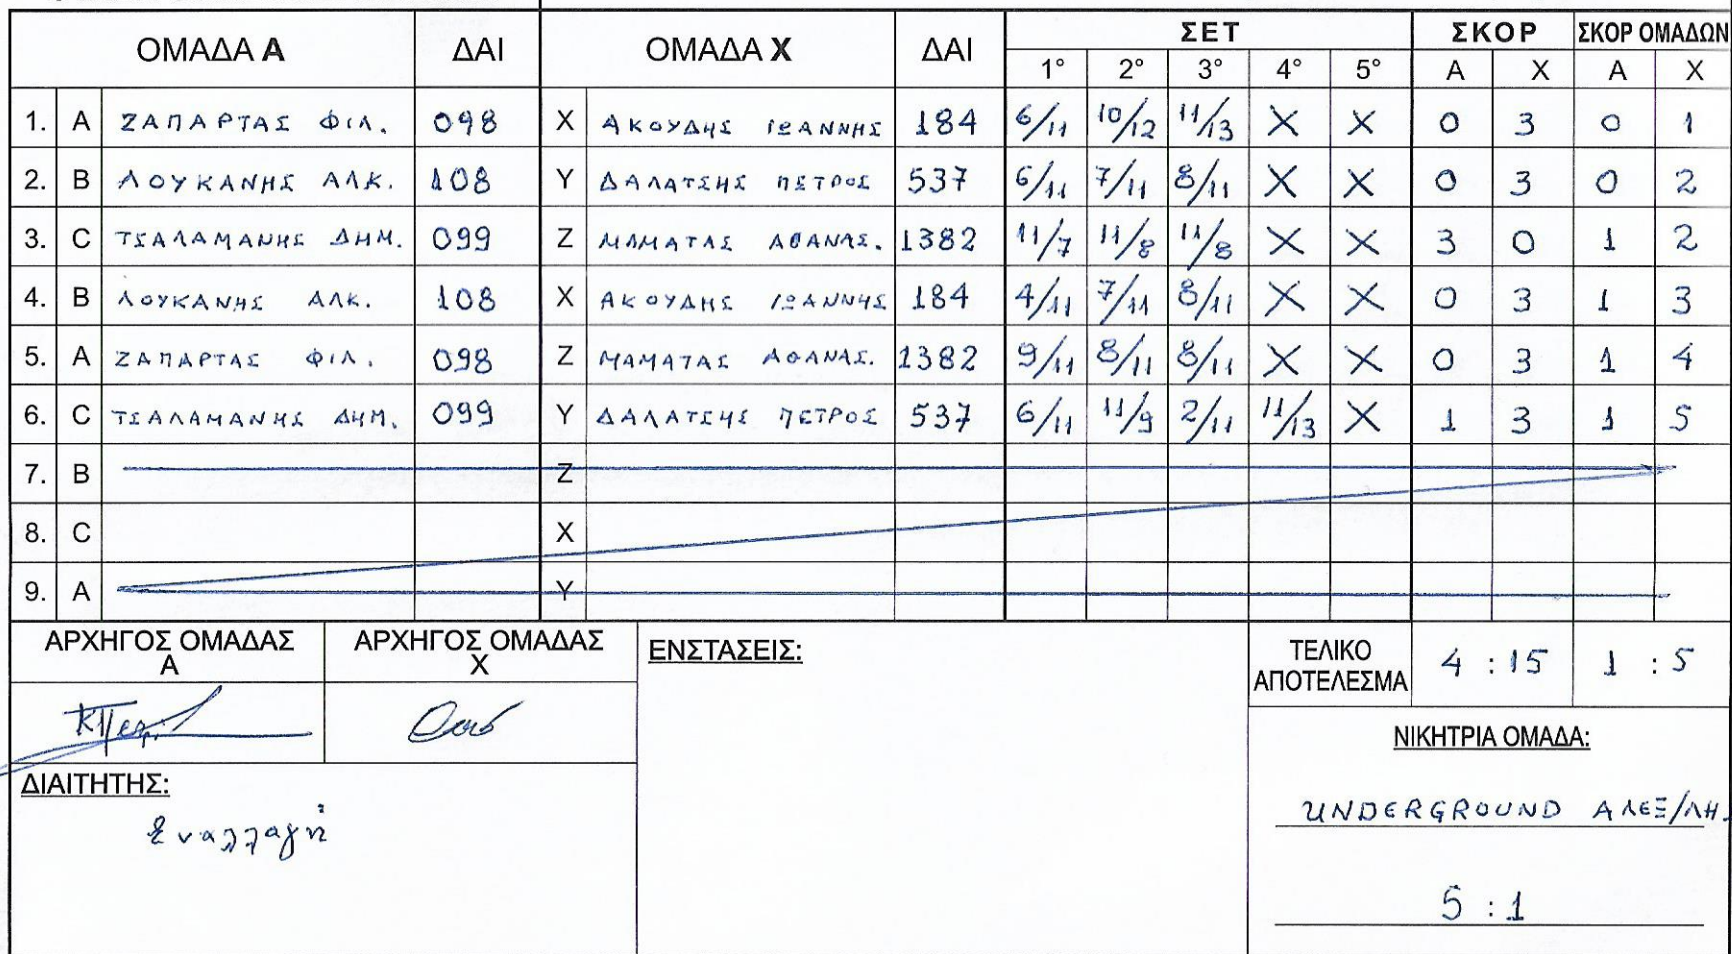 ΟΜΑΔΑ Α ΔΑΙ ΟΜΑΔΑ Χ ΔΑΙ ΣΕΤ ΣΚΟΡ ΣΚΟΡ ΟΜΑΔΩΝ
1° 2° 3° 4° 5° Α Χ Α Χ
1. A ΖΑΠΑΡΤΑΣ ΦΙΛ. 098 X ΑΚΟΥΔΗΣ ΙΩΑΝΝΗΣ 184 6/11 10/12 11/13 X X 0 3 0 1
2. B ΛΟΥΚΑΝΗΣ ΑΛΚ. 108 Y ΔΑΛΑΤΣΗΣ ΠΕΤΡΟΣ 537 6/11 7/11 8/11 X X 0 3 0 2
3. C ΤΣΑΛΑΜΑΝΗΣ ΔΗΜ. 099 Z ΜΑΜΑΤΑΣ ΑΘΑΝΑΣ. 1382 11/7 11/8 11/8 X X 3 0 1 2
4. B ΛΟΥΚΑΝΗΣ ΑΛΚ. 108 X ΑΚΟΥΔΗΣ ΙΩΑΝΝΗΣ 184 4/11 7/11 8/11 X X 0 3 1 3
5. A ΖΑΠΑΡΤΑΣ ΦΙΛ. 098 Z ΜΑΜΑΤΑΣ ΑΘΑΝΑΣ. 1382 9/11 8/11 8/11 X X 0 3 1 4
6. C ΤΣΑΛΑΜΑΝΗΣ ΔΗΜ. 099 Y ΔΑΛΑΤΣΗΣ ΠΕΤΡΟΣ 537 6/11 11/9 2/11 11/13 X 1 3 1 5
7. B Z
8. C X
9. A Y
ΑΡΧΗΓΟΣ ΟΜΑΔΑΣ Α
ΑΡΧΗΓΟΣ ΟΜΑΔΑΣ Χ
ΕΝΣΤΑΣΕΙΣ:
ΤΕΛΙΚΟ ΑΠΟΤΕΛΕΣΜΑ 4 : 15 1 : 5
ΝΙΚΗΤΡΙΑ ΟΜΑΔΑ:
ΔΙΑΙΤΗΤΗΣ:
Εναλλαγή
UNDERGROUND ΑΛΕΞ/ΛΗ.
5 : 1